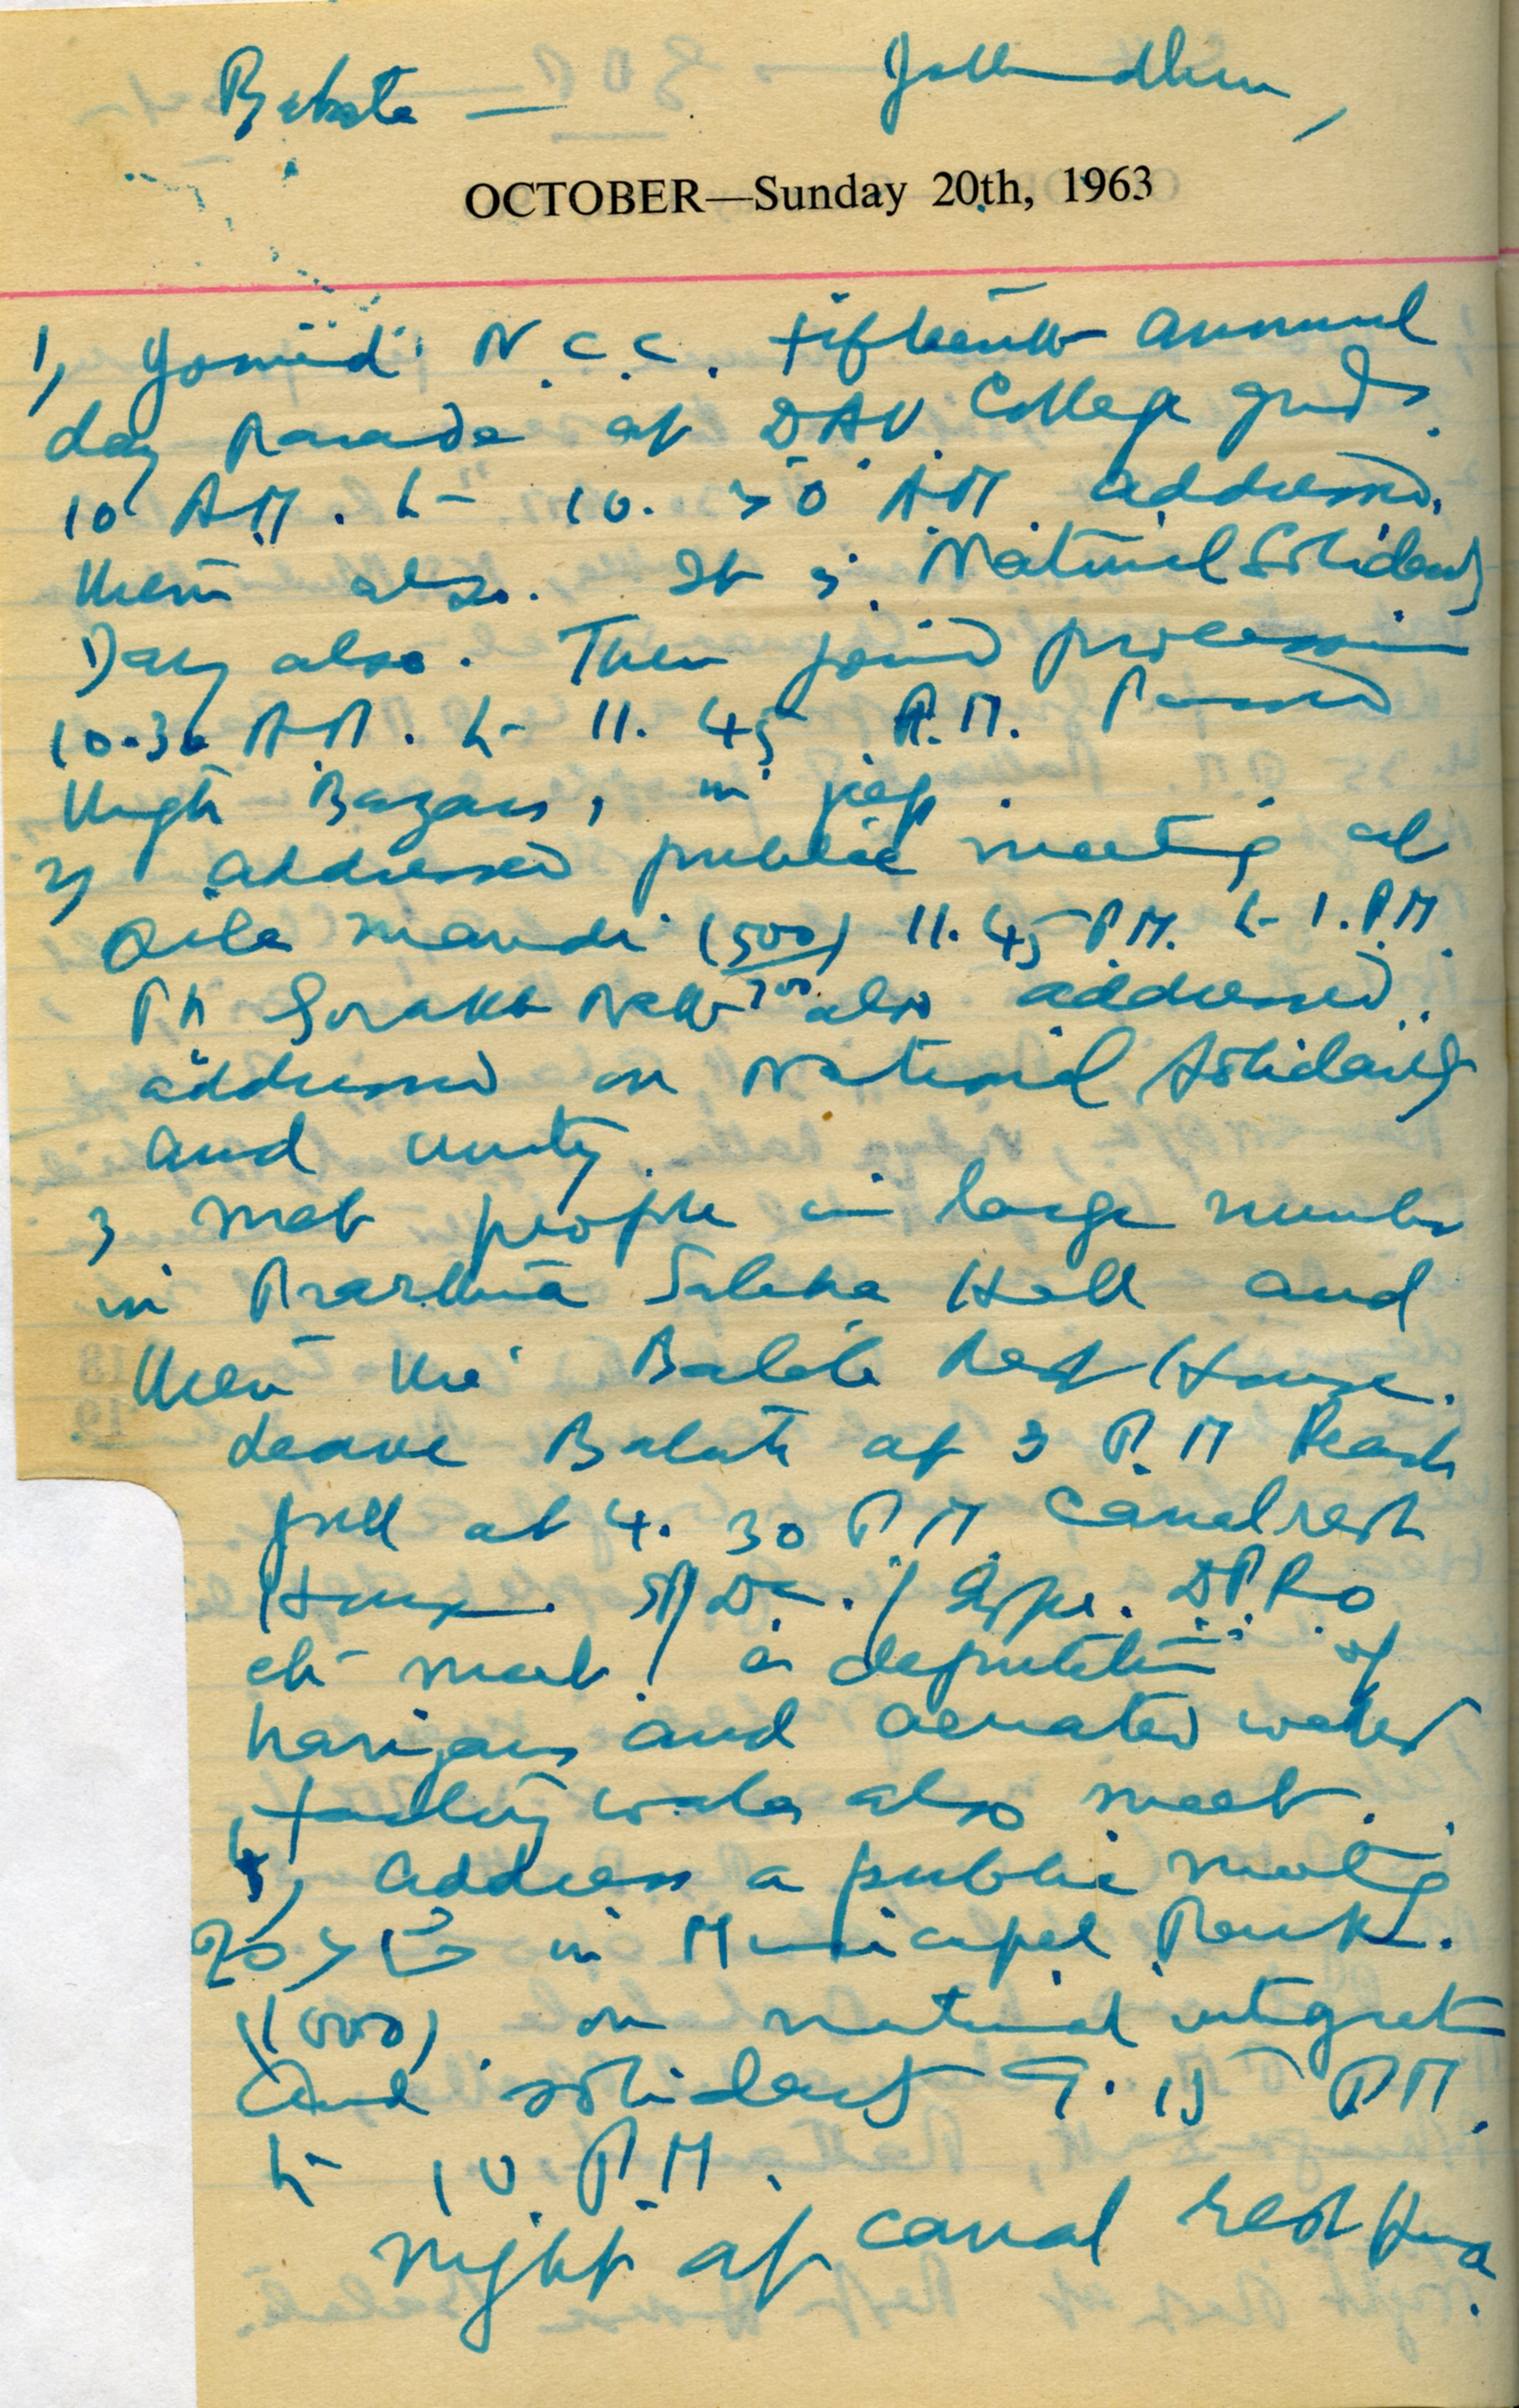 Batala — Jullundhur,
OCTOBER—Sunday 20th, 1963
1, Joined N.C.C. fifteenth annual
day parade at DAV College grds.
10 A.M. to 10.30 A.M. addressed
them also. It is National Solidarity
Day also. Then joined procession
10.30 A.M. to 11.45 P.M. Passed
through Bazars, in jeep.
2, addressed public meeting at
Qila mandi (500) 11.45 P.M. to 1. P.M.
Pt Gorakh Nath also addressed.
addressed on National Solidarity
and unity.
3 met people in large number
in Prarthna Sabha Hall and
then the Batala Rest House.
Leave Batala at 3 P.M Reach
Jull at 4.30 P.M. Canal rest
House. DPRO
etc meet / a deputation of
harijans and aerated water
walas also meet.
address a public meeting
in Municipal Park.
(1000) on national integration
and solidarity 9.15 P.M.
to 10. P.M.
Night at canal rest House.